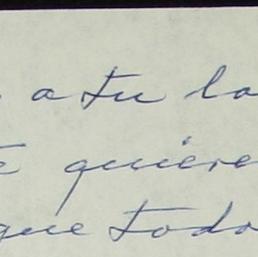 a tu la
quiere
que todo